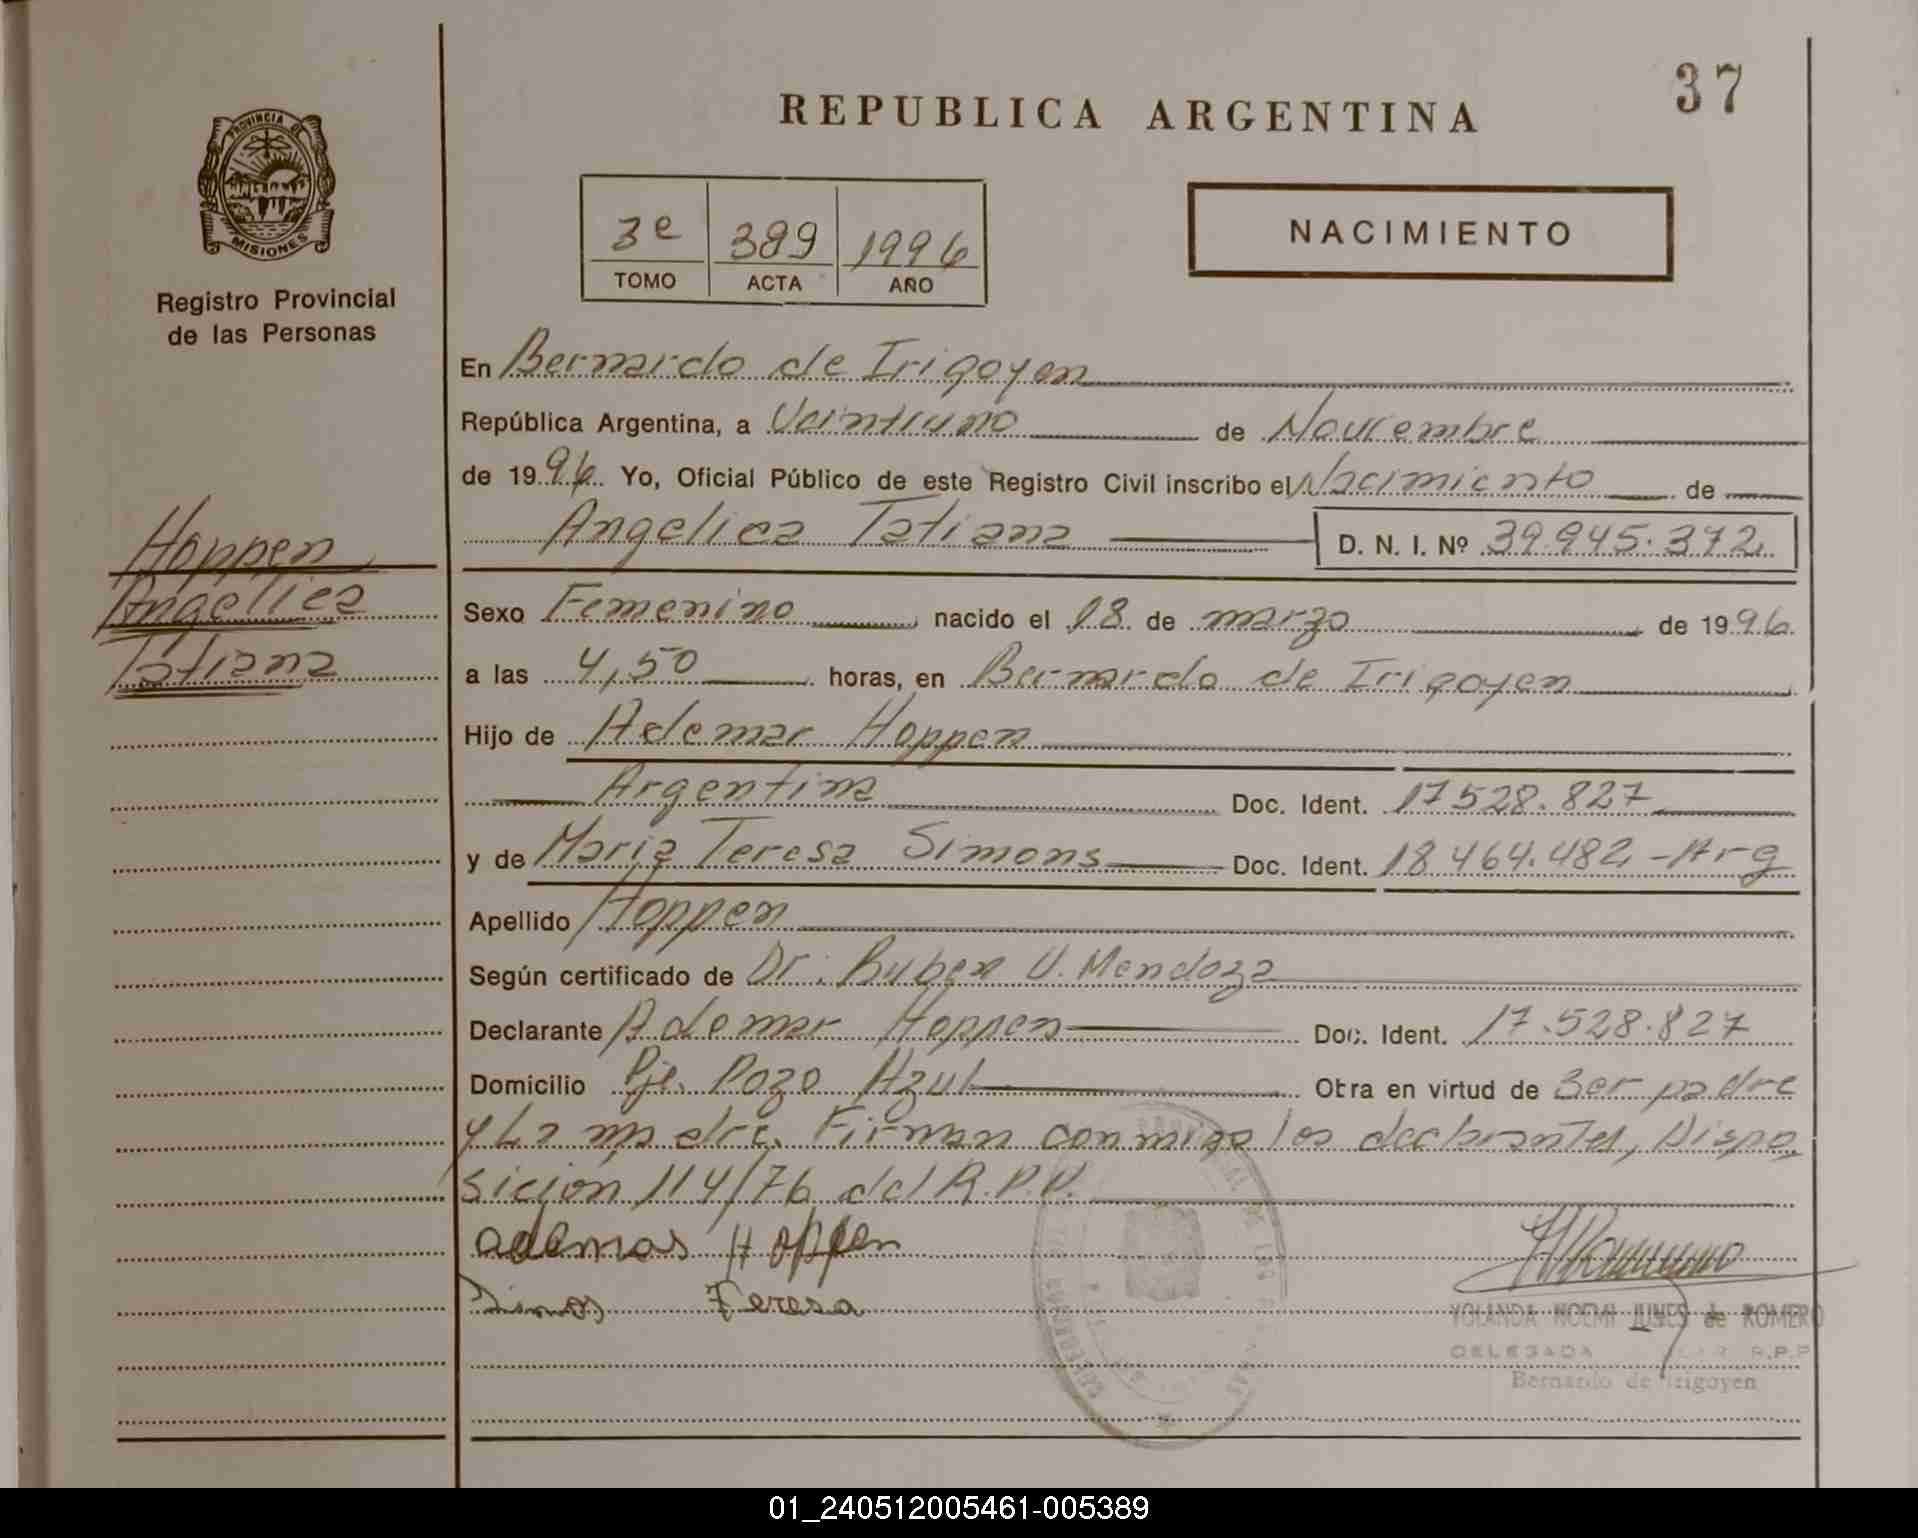 37
REPUBLICA ARGENTINA
PROVINCIA DE
MISIONES
Registro Provincial
de las Personas
3e 389 1996
TOMO ACTA AÑO
NACIMIENTO
En Bernardo de Irigoyen
República Argentina, a Veintiuno de Noviembre
de 1996. Yo, Oficial Público de este Registro Civil inscribo el Nacimiento de
Angelica Tatiana D. N. I. Nº 39.945.372
Hoppen
Angelica
Tatiana
Sexo Femenino nacido el 18 de marzo de 1996
a las 4,50 horas, en Bernardo de Irigoyen
Hijo de Ademar Hoppen
Argentina Doc. Ident. 17528.827
y de Maria Teresa Simons Doc. Ident. 18464.482 - Arg
Apellido Hoppen
Según certificado de Dr. Ruben V. Mendoza
Declarante Ademar Hoppen Doc. Ident. 17.528.827
Domicilio Pje. Pozo Azul Obra en virtud de ser padre
y La madre. Firman conmigo los declarantes, Dispo
sición 114/76 del R.P.P.
ademas Hoppen
Simos Teresa
YOLANDA NOEMI JUNES de ROMERO
DELEGADA R.P.P
Bernardo de Irigoyen
01_240512005461-005389